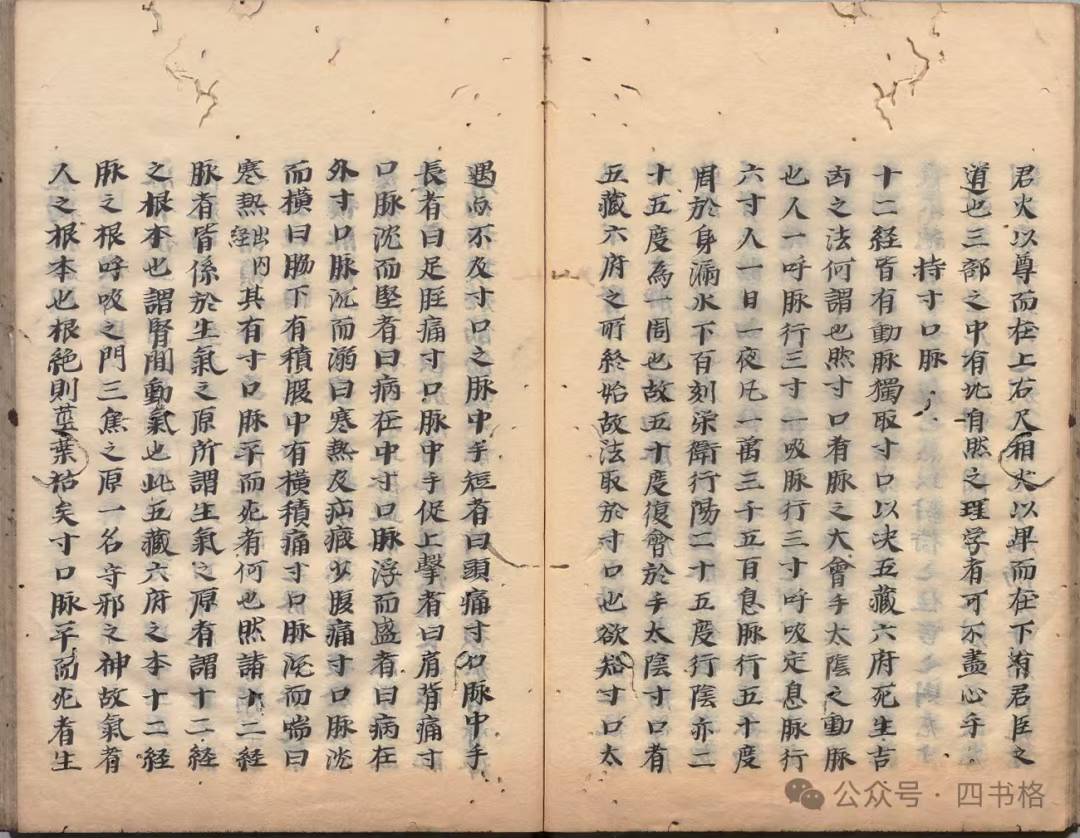 君火以尊而在上右尺相火以卑而在下有君臣之
道也三部之中有此自然之理学者可不盡心乎
持寸口脉
十二経皆有動脉獨取寸口以决五藏六府死生吉
凶之法何謂也然寸口者脉之大會手太陰之動脉
也人一呼脉行三寸一吸脉行三寸呼吸定息脉行
六寸人一日一夜凡一萬三千五百息脉行五十度
周於身漏水下百刻栄衛行陽二十五度行陰亦二
十五度為一周也故五十度復會於手太陰寸口者
五藏六府之所終始故法取於寸口也欲知寸口太
過与不及寸口之脉中手短者曰頭痛寸口脉中手
長者曰足胫痛寸口脉中手促上擊者曰肩背痛寸
口脉沈而堅者曰病在中寸口脉浮而盛者曰病在
外寸口脉沉而溺曰寒熱及疝瘕少腹痛寸口脉沈
而横曰胁下有積腹中有横積痛寸口脉沉而喘曰
寒熱経出内其有寸口脉平而死者何也然諸十二経
脉者皆係於生氣之原所謂生氣之原者謂十二経
之根本也謂腎間動氣也此五藏六府之本十二経
脉之根呼吸之門三焦之原一名守邪之神故氣者
人之根本也根絶則茎葉枯矣寸口脉平而死者生
公众号·四书格